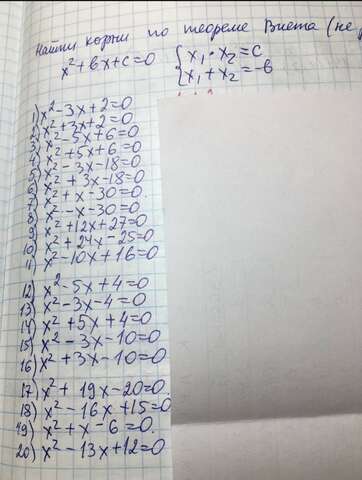 Найти корни по теореме Виета (не р
x² + bx + c = 0 { x₁ · x₂ = c
x₁ + x₂ = -b
1) x² - 3x + 2 = 0
2) x² + 3x + 2 = 0
3) x² - 5x + 6 = 0
4) x² + 5x + 6 = 0
5) x² - 3x - 18 = 0
6) x² + 3x - 18 = 0
7) x² + x - 30 = 0.
8) x² - x - 30 = 0.
9) x² + 12x + 27 = 0
10) x² + 24x - 25 = 0
11) x² - 10x + 16 = 0
12) x² - 5x + 4 = 0
13) x² - 3x - 4 = 0
14) x² + 5x + 4 = 0
15) x² - 3x - 10 = 0
16) x² + 3x - 10 = 0
17) x² + 19x - 20 = 0
18) x² - 16x + 15 = 0
19) x² + x - 6 = 0.
20) x² - 13x + 12 = 0